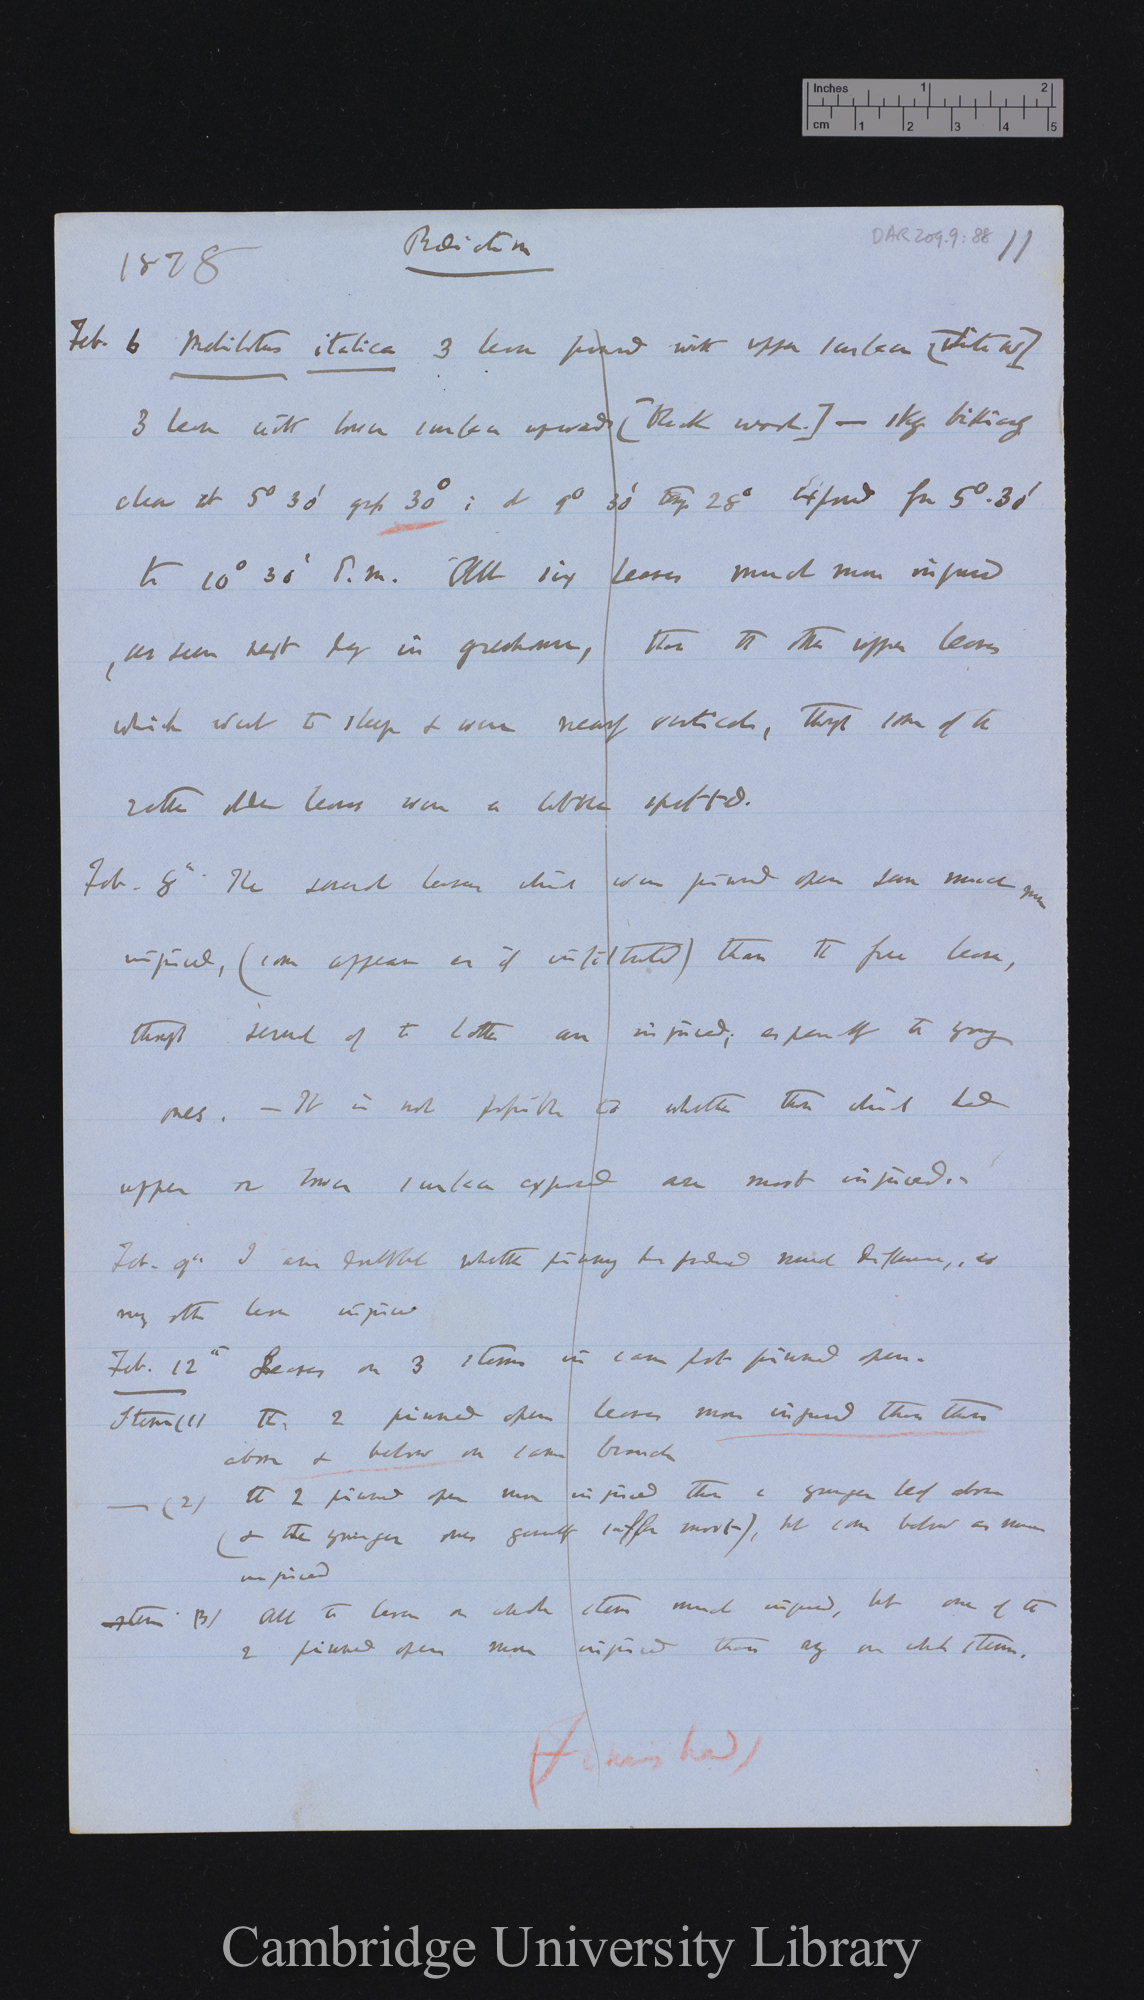 Inches 1 2
cm 1 2 3 4 5
DAR 209.9: 88 11
1878 Radiation
Feb. 6 Melilotus italica 3 leaves pinned with upper surfaces [White W]
3 leaves with lower surfaces upwards [Black worsted.] — sky
clear at 5° 30' 30° ; at 9° 30' temp 28° Exposed from 5°.30'
to 10° 30' P.m. All six leaves much more injured
, as seen next day in greenhouse, than the other upper leaves
which went to sleep & were nearly vertical, though some of the
rather older leaves were a little spotted.
Feb. 8th The several leaves which were pinned open seem much more
injured, (some appear as if ) than the free leaves,
though several of the latter are injured; especially the young
ones. — It is not possible to whether those which had
upper or lower surfaces exposed are most injured.-
Feb. 9th I am doubtful whether pinning has produced much difference, so
many other leaves injured
Feb. 12th Leaves on 3 stems in same pot pinned open.
Stem (1) The 2 pinned open leaves more injured than those
above & below on same branch
— (2) the 2 pinned open more injured than a younger leaf above
(& the younger ones generally suffer most), but some below as much
injured
Stem (3) All the leaves on whole stem much injured, but one of the
2 pinned open more injured than any on whole stem.
Cambridge University Library